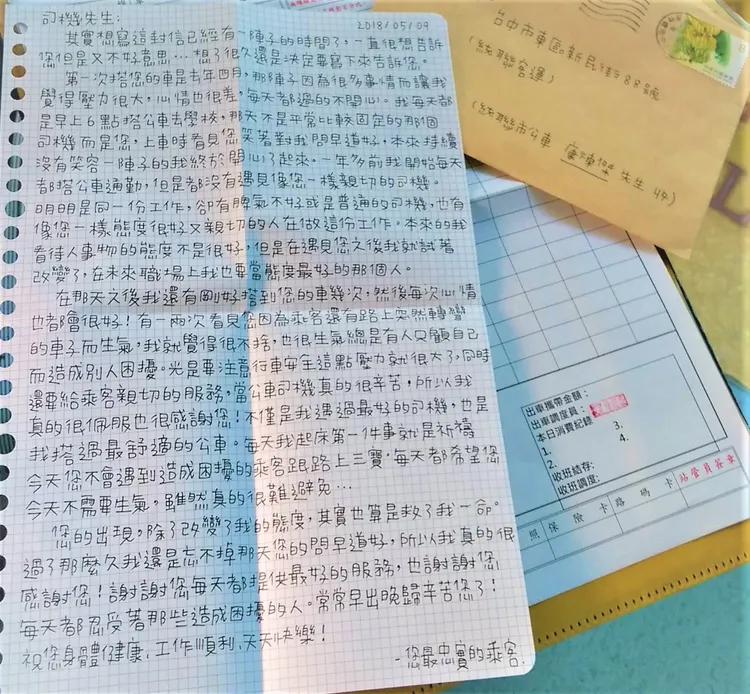 司機先生:
2018/05/09
其實想寫這封信已經有一陣子的時間了,一直很想告訴
您但是又不好意思…想了很久還是決定要寫下來告訴您。
第一次搭您的車是去年四月,那陣子因為很多事情而讓我
覺得壓力很大,心情也很差,每天都過的不開心。我每天都
是早上6點搭公車去學校,那天不是平常比較固定的那個
司機而是您,上車時看見您笑著對我問早道好,本來持續
沒有笑容一陣子的我終於開心了起來。一年多前我開始每天
都搭公車通勤,但是都沒有遇見像您一樣親切的司機。
明明是同一份工作,卻有脾氣不好或是普通的司機,也有
像您一樣態度很好又親切的人在做這份工作。本來的我
看待人事物的態度不是很好,但是在遇見您之後我就試著
改變了,在未來職場上我也要當態度最好的那個人。
在那天之後我還有剛好搭到您的車幾次,然後每次心情
也都會很好!有一兩次看見您因為乘客還有路上突然轉彎
的車子而生氣,我就覺得很不捨,也很生氣總是有人只顧自己
而造成別人困擾。光是要注意行車安全這點壓力就很大了,同時
還要給乘客親切的服務,當公車司機真的很辛苦,所以我
真的很佩服也很感謝您!不僅是我遇過最好的司機,也是
我搭過最舒適的公車。每天我起床第一件事就是祈禱
今天您不會遇到造成困擾的乘客跟路上三寶,每天都希望您
今天不需要生氣,雖然真的很難避免…
您的出現,除了改變了我的態度,其實也算是救了我一命。
過了那麼久我還是忘不掉那天您的問早道好,所以我真的很
感謝您!謝謝您每天都提供最好的服務,也謝謝您
每天都忍受著那些造成困擾的人。常常早出晚歸辛苦您了!
祝您身體健康、工作順利、天天快樂!
-您最忠實的乘客.
台中市東區新民街88號
(統聯客運)
(統聯市公車 先生 收)
出車攜帶金額:
出車調度員:
本日消費紀錄
1. 3.
2. 4.
收班結存:
收班調度:
照 保險卡 路碼卡 站管員簽章